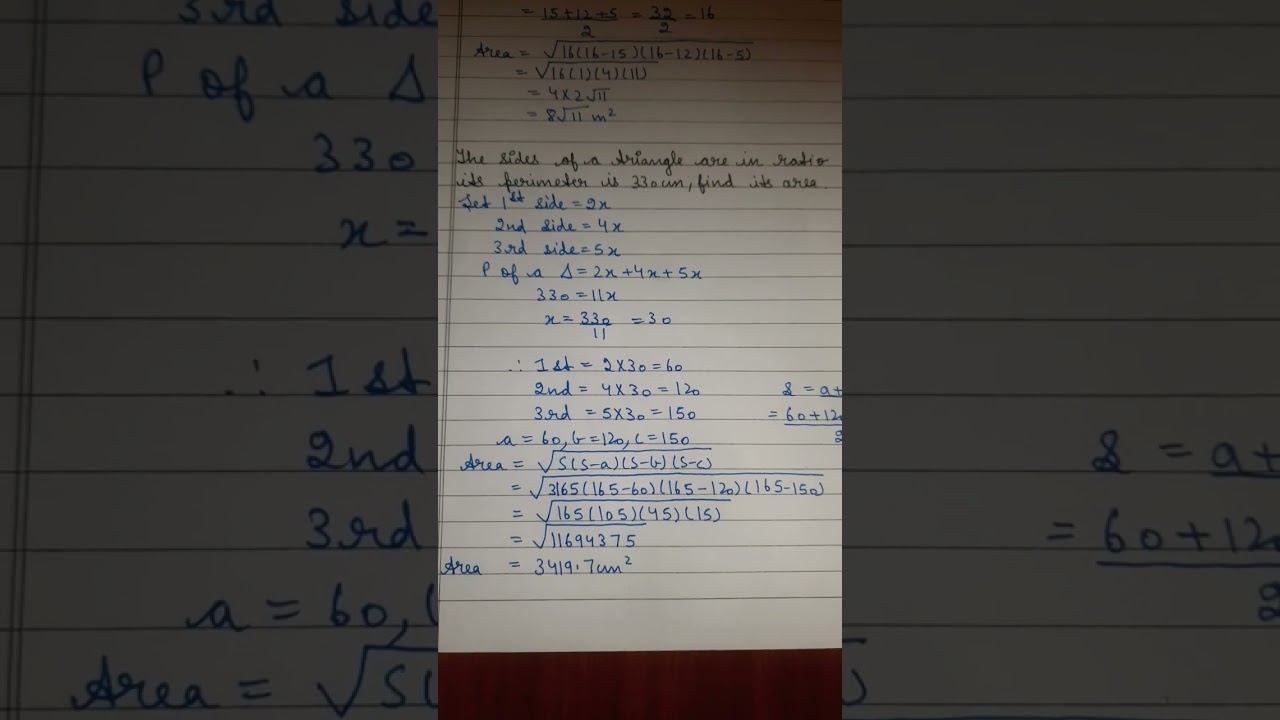 = 15+12+5/2 = 32/2 = 16
Area = √16(16-15)(16-12)(16-5)
= √16(1)(4)(11)
= 4×2√11
= 8√11 m²
The sides of a triangle are in ratio
its perimeter is 330cm, find its area.
Let 1st side = 2x
2nd side = 4x
3rd side = 5x
P of a Δ = 2x+4x+5x
330 = 11x
x = 330/11 = 30
∴ 1st = 2×30 = 60
2nd = 4×30 = 120
3rd = 5×30 = 150
S = a+
= 60+12
2
a = 60, b = 120, c = 150
Area = √S(S-a)(S-b)(S-c)
= √3165(165-60)(165-120)(165-150)
= √165(105)(45)(15)
= √11694375
Area = 3419.7cm²